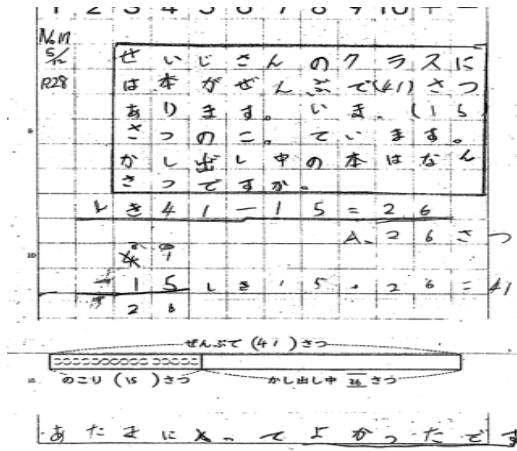 1 2 3 4 5 6 7 8 9 10 + −
No.11
5/12
R28
せいじさんのクラスに
は本がぜんぶで(41)さつ
あります。いま、(15)
さつのこっています。
かし出し中の本はなん
さつですか。
しき41−15=26
A、26さつ
15 しき15+26=41
26
ぜんぶで(41)さつ
のこり(15)さつ かし出し中 26 さつ
あたまに入ってよかったです